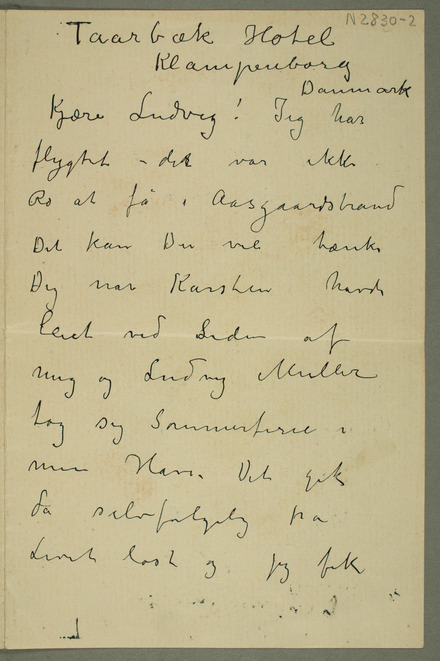 N2830-2
Taarbæk Hotel
Klampenborg
Danmark
Kjære Ludvig! Jeg har
flygtet – det var ikke
Ro at få i Aasgaardstrand
Det kan Du vel tænke
Dig når Karsten havde
leiet ved Siden af
mig og Ludvig Müller
tog sig Sommerferie i
min Have. Det gik
da selvfølgelig fra
Livet løst og jeg fik